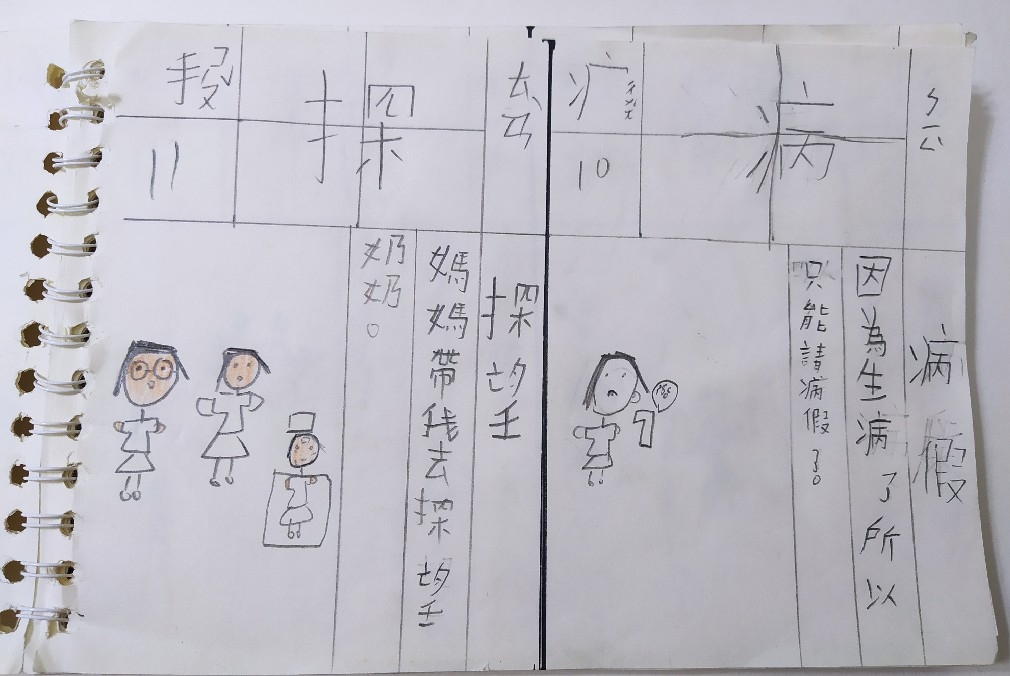 病
疒
10
病假
因為生病了所以
只能請病假了。
探
11
探望
媽媽帶我去探望
奶奶。